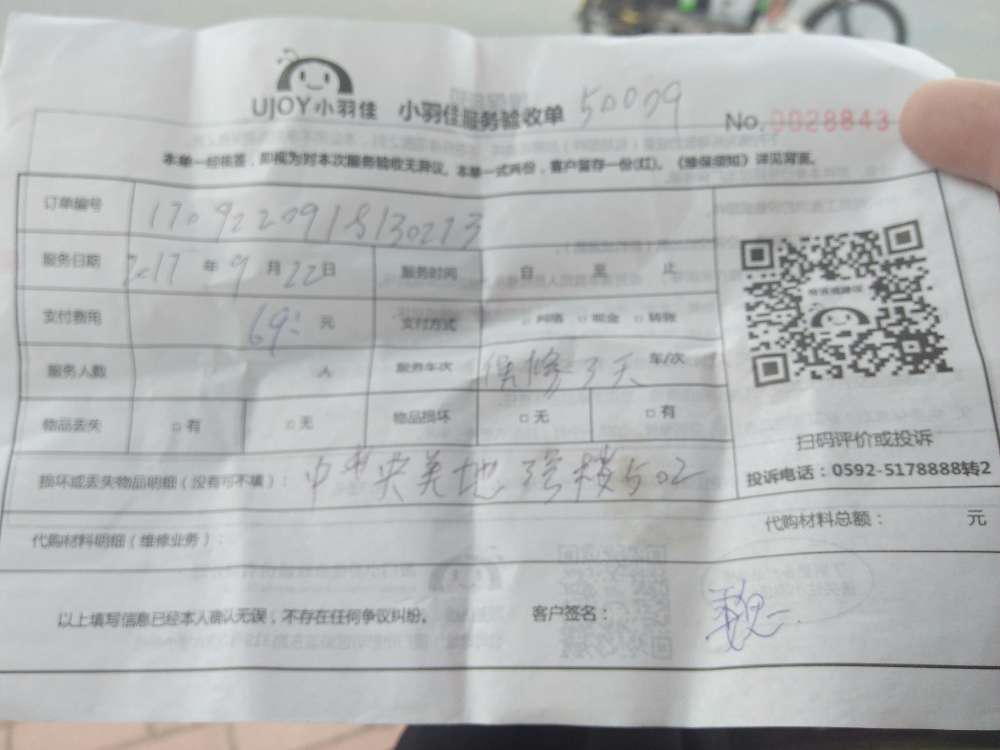 UJOY小羽佳 小羽佳服务验收单 50009
No. 0028843
本单一经核签，即视为对本次服务验收无异议。本单一式两份，客户留存一份(红)。《维保须知》详见背面。
订单编号 1709220918130213
服务日期 2017 年 9 月 22 日 服务时间 自 至 止
支付费用 69 元 支付方式 □ 网络 □ 现金 □ 转账
服务人数 人 服务车次 保修3天 车/次
物品丢失 □ 有 □ 无 物品损坏 □ 无 □ 有
扫码评价或投诉
投诉电话：0592-5178888转2
损坏或丢失物品明细（没有可不填）： 中央美地 3号楼502
代购材料明细（维修业务）： 代购材料总额： 元
以上填写信息已经本人确认无误，不存在任何争议纠纷。 客户签名：